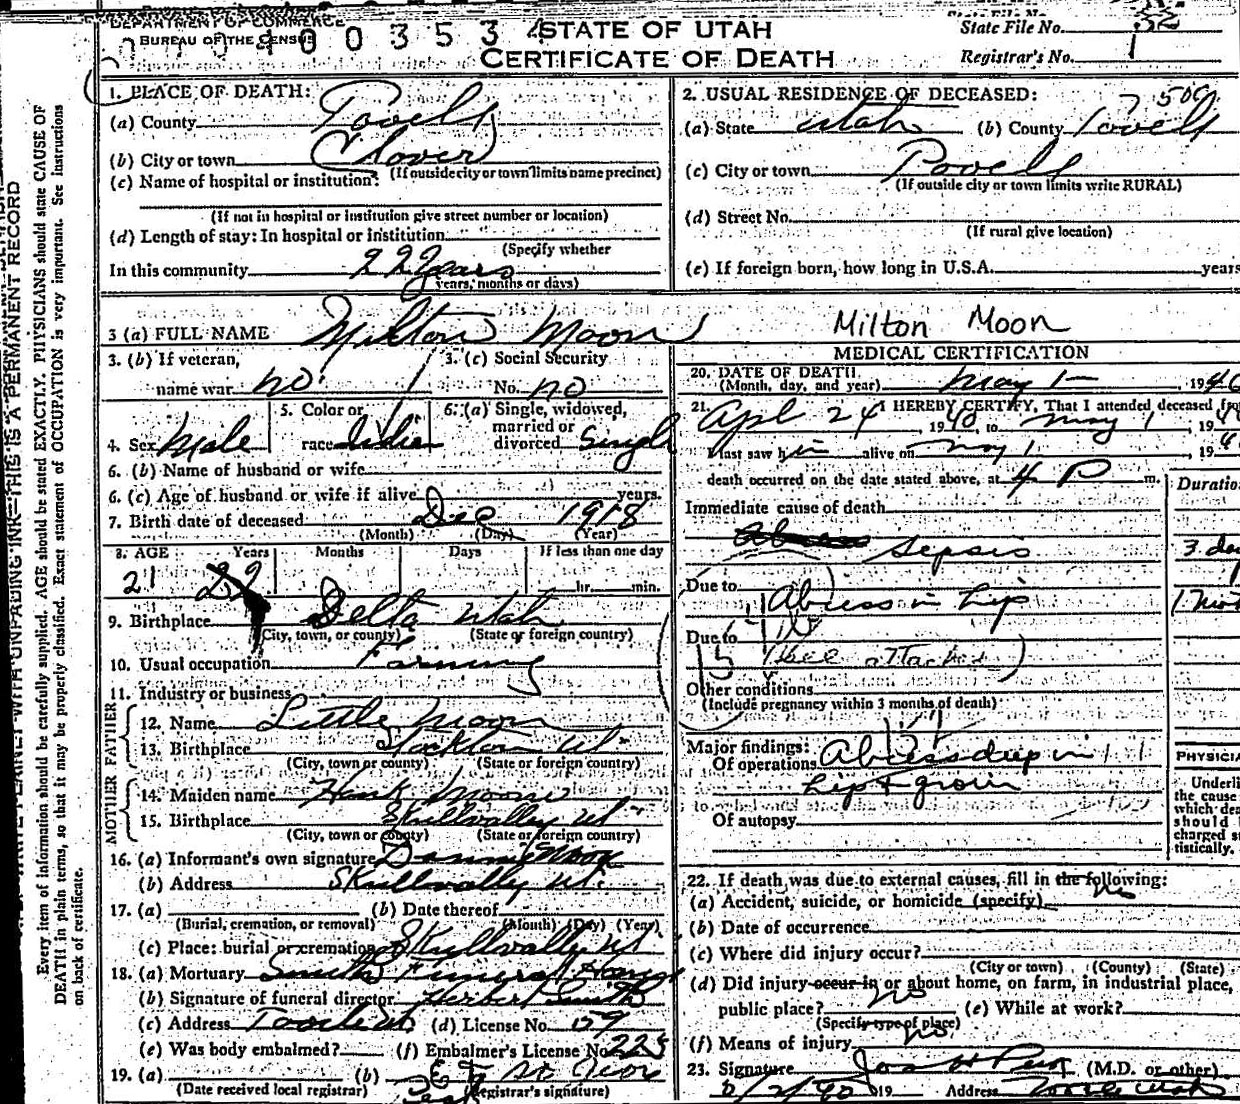 DEPARTMENT OF COMMERCE
BUREAU OF THE CENSUS
00353
STATE OF UTAH
CERTIFICATE OF DEATH
State File No.
Registrar's No. 1
1. PLACE OF DEATH:
(a) County
(b) City or town Clover
(If outside city or town limits name precinct)
(c) Name of hospital or institution:
(If not in hospital or institution give street number or location)
(d) Length of stay: In hospital or institution
(Specify whether
In this community 22 years
years, months or days)
2. USUAL RESIDENCE OF DECEASED:
(a) State Utah (b) County
(c) City or town
(If outside city or town limits write RURAL)
(d) Street No.
(If rural give location)
(e) If foreign born, how long in U.S.A. years
3 (a) FULL NAME Milton Moon
Milton Moon
3. (b) If veteran,
name war no
3. (c) Social Security
No. no
4. Sex Male
5. Color or
race
6. (a) Single, widowed,
married or
divorced Single
6. (b) Name of husband or wife
6. (c) Age of husband or wife if alive years.
7. Birth date of deceased Dec 1918
(Month) (Day) (Year)
8. AGE Years Months Days If less than one day
21 22 hr. min.
9. Birthplace Delta Utah
(City, town, or county) (State or foreign country)
10. Usual occupation Farming
11. Industry or business
FATHER
12. Name Little Moon
13. Birthplace Stockton Ut
(City, town or county) (State or foreign country)
MOTHER
14. Maiden name Moon
15. Birthplace Skullvally Ut
(City, town or county) (State or foreign country)
16. (a) Informant's own signature Moon
(b) Address Skullvally Ut.
17. (a) (b) Date thereof
(Burial, cremation, or removal) (Month) (Day) (Year)
(c) Place: burial or cremation Skullvally Ut
18. (a) Mortuary Smith Funeral Home
(b) Signature of funeral director Herbert Smith
(c) Address (d) License No. 159
(e) Was body embalmed? (f) Embalmer's License No. 225
19. (a) (b)
(Date received local registrar) (Registrar's signature)
MEDICAL CERTIFICATION
20. DATE OF DEATH
(Month, day, and year) May 1 1940
21. I HEREBY CERTIFY, That I attended deceased from
Apl 24 1940, to May 1 19
I last saw him alive on May 1 194
death occurred on the date stated above, at 4 P m.
Duration
Immediate cause of death
Sepsis 3 day
Due to Abcess in hip 1
Due to
(see attached)
Other conditions
(Include pregnancy within 3 months of death)
Major findings:
Of operations Abcess deep in
hip + groin
Of autopsy
PHYSICIA
Underli
the cause
which dea
should
charged s
tistically.
22. If death was due to external causes, fill in the following:
(a) Accident, suicide, or homicide (specify) no
(b) Date of occurrence
(c) Where did injury occur?
(City or town) (County) (State)
(d) Did injury occur in or about home, on farm, in industrial place,
public place? no (e) While at work?
(Specify type of place)
(f) Means of injury no
23. Signature (M.D. or other)
19 Address Tooele Utah
Every item of information should be carefully supplied. AGE should be stated EXACTLY. PHYSICIANS should state CAUSE OF
DEATH in plain terms, so that it may be properly classified. Exact statement of OCCUPATION is very important. See instructions
on back of certificate.
WRITE PLAINLY WITH UNFADING INK—THIS IS A PERMANENT RECORD